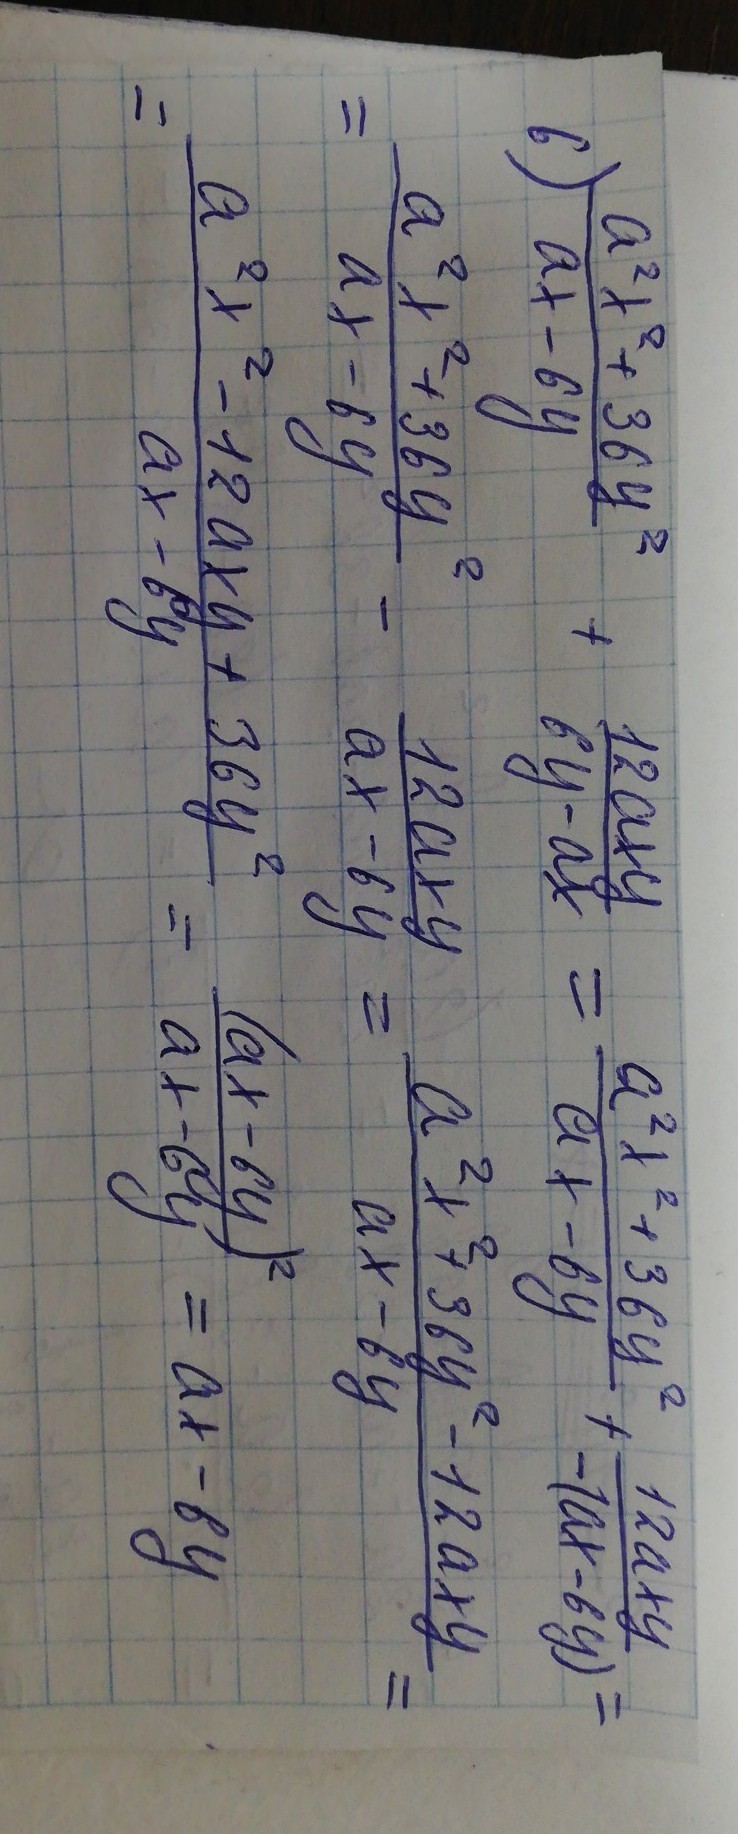 в) (a²x² + 36y²)/(ax - 6y) + 12axy/(6y - ax) = (a²x² + 36y²)/(ax - 6y) + 12axy/(-(ax - 6y)) =
= (a²x² + 36y²)/(ax - 6y) - 12axy/(ax - 6y) = (a²x² + 36y² - 12axy)/(ax - 6y) =
= (a²x² - 12axy + 36y²)/(ax - 6y) = (ax - 6y)²/(ax - 6y) = ax - 6y